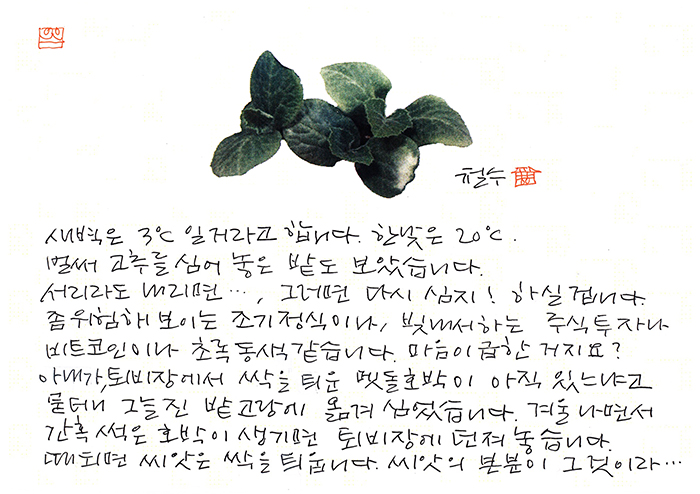 철수
새벽은 3℃ 일거라고 합니다. 한낮은 20℃.
벌써 고추를 심어 놓은 밭도 보았습니다.
서리라도 내리면…, 그러면 다시 심지! 하실 겁니다.
좀 위험해 보이는 조기정식이나, 빚내서하는 주식투자나
비트코인이나 초록동색 같습니다. 마음이 급한 거지요?
아내가, 퇴비장에서 싹을 틔운 멧돌호박이 아직 있느냐고
묻더니 그늘진 밭고랑에 옮겨 심었습니다. 겨울나면서
간혹 썩은 호박이 생기면 퇴비장에 던져 놓습니다.
때되면 씨앗은 싹을 틔웁니다. 씨앗의 본분이 그것이라…